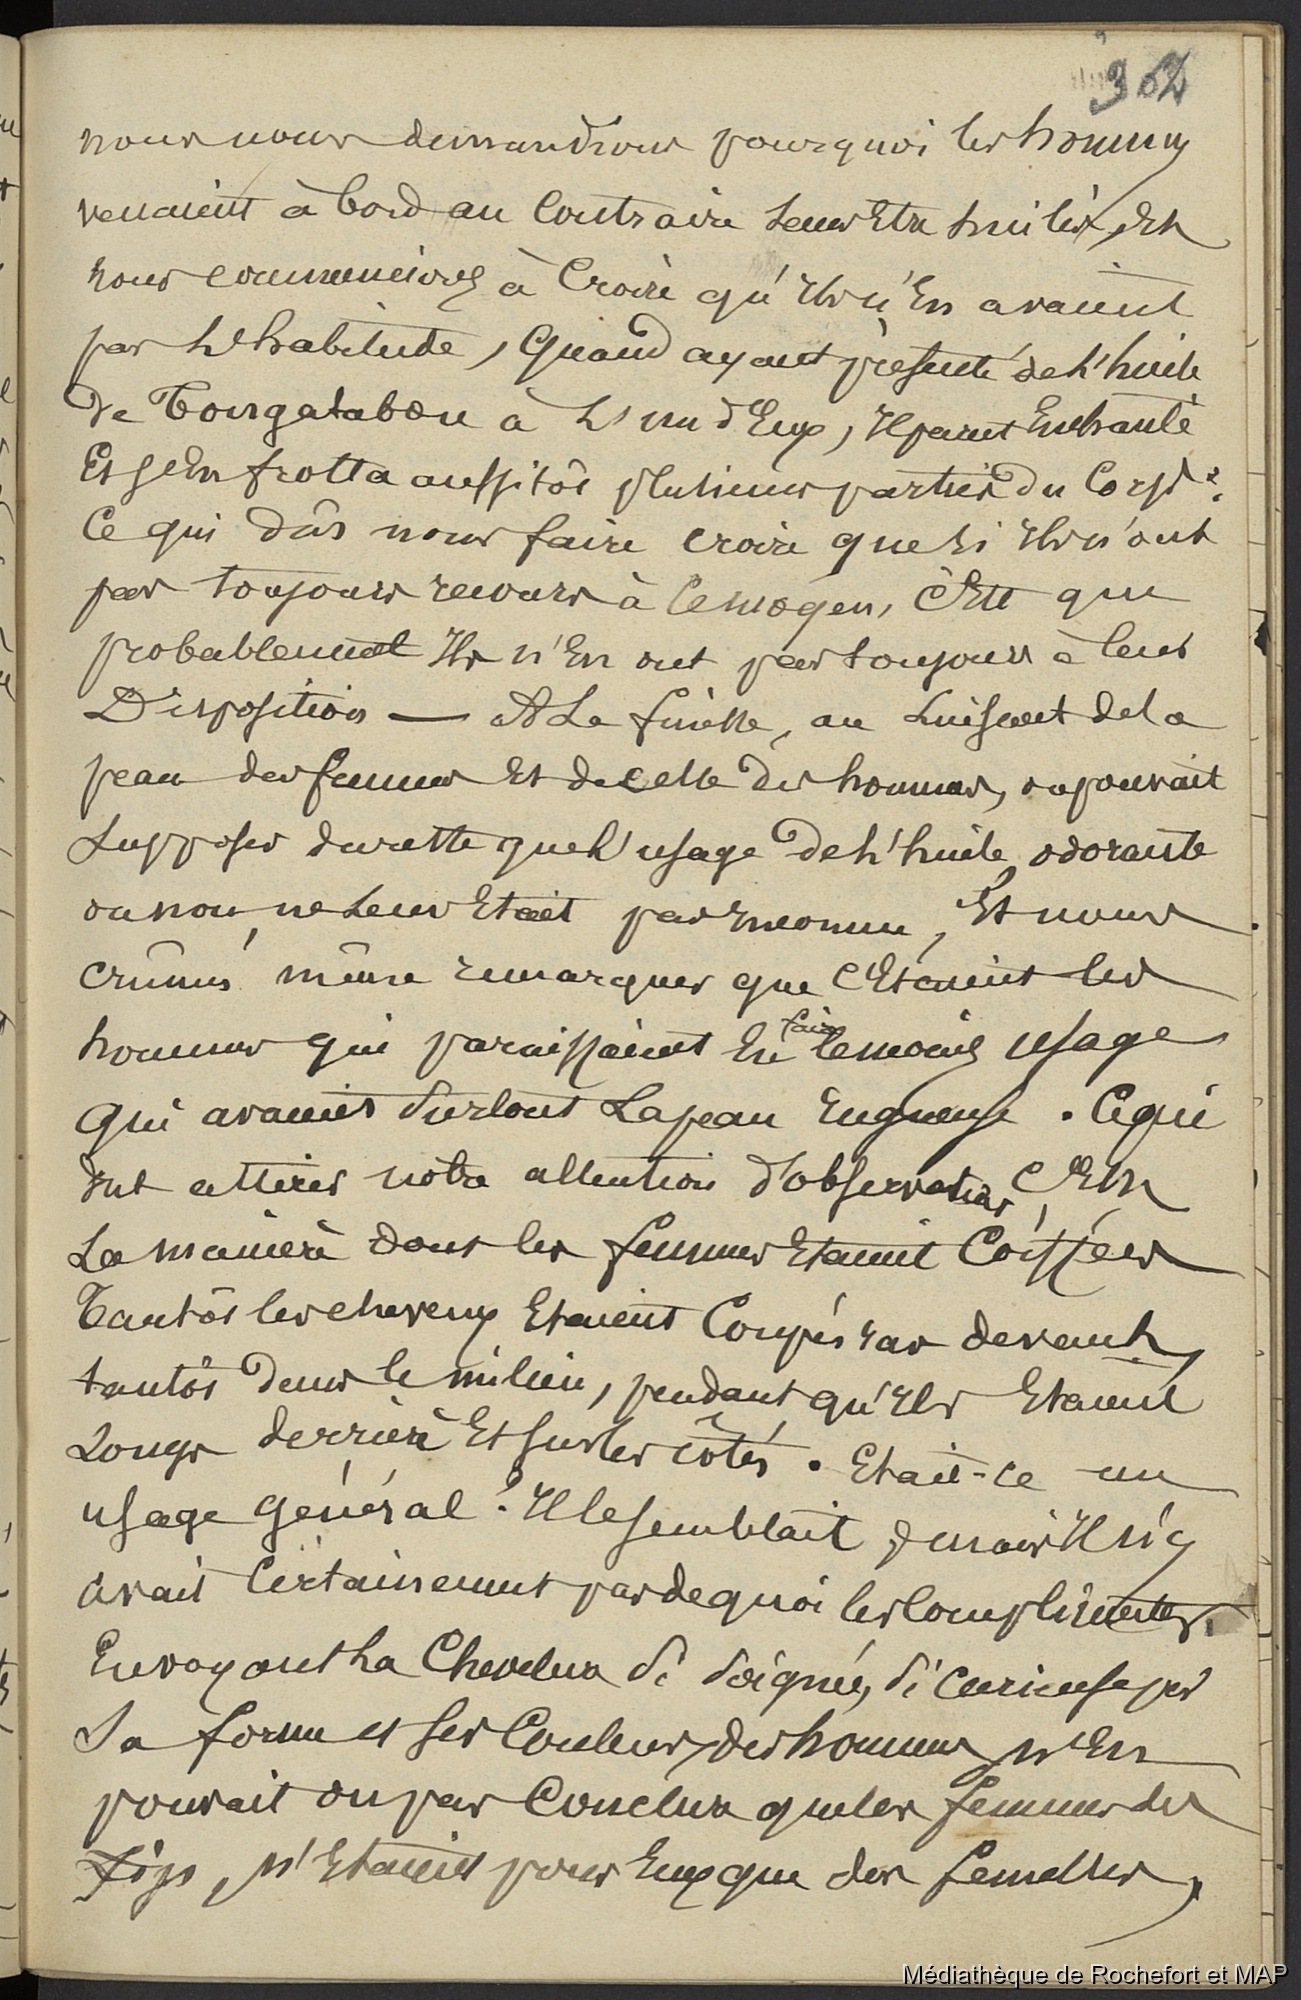 362
nous nous demandions pourquoi les hommes
venaient à bord au Contraire Sans Etre huilés, Et
nous commencions à Croire qu'Ils n'En avaient
pas L'habitude, Quand ayant présenté de L'huile
de Tongatabou à L'un d'Eux, Il parut Enchanté
Et S'En frotta aussitôt plusieurs parties du Corps.
Ce qui dût nous faire croire que si Ils n'ont
pas toujours recours à Ce moyen, C'Est que
probablement Ils n'En ont pas toujours à leur
Disposition — A La finesse, au Luisant de la
peau des femmes Et de celle des hommes, on pouvait
Supposer du reste que L'usage de L'huile odorante
ou non, ne Leur Etait pas Inconnu, Et nous
crûmes même remarquer que C'Etaient les
hommes qui paraissaient En faire le moins usage
qui avaient Surtout La peau rugueuse. Ce qui
dut attirer notre attention d'observateur, C'Est
La manière dont les femmes Etaient Coiffées
Tantôt les cheveux Etaient Coupés ras devant,
tantôt dans le milieu, pendant qu'Ils Etaient
Longs derrière Et Sur les côtés. Etait-ce un
usage général? Il le semblait, mais Il n'y
avait Certainement pas de quoi les Complimenter.
En voyant La Chevelure Si Soignée, Si Curieuse par
Sa forme et Ses Couleurs, des hommes, n'En
pouvait on pas Conclure que les femmes des
Fijis, n'Etaient pour Eux que des femelles,
Médiathèque de Rochefort et MAP